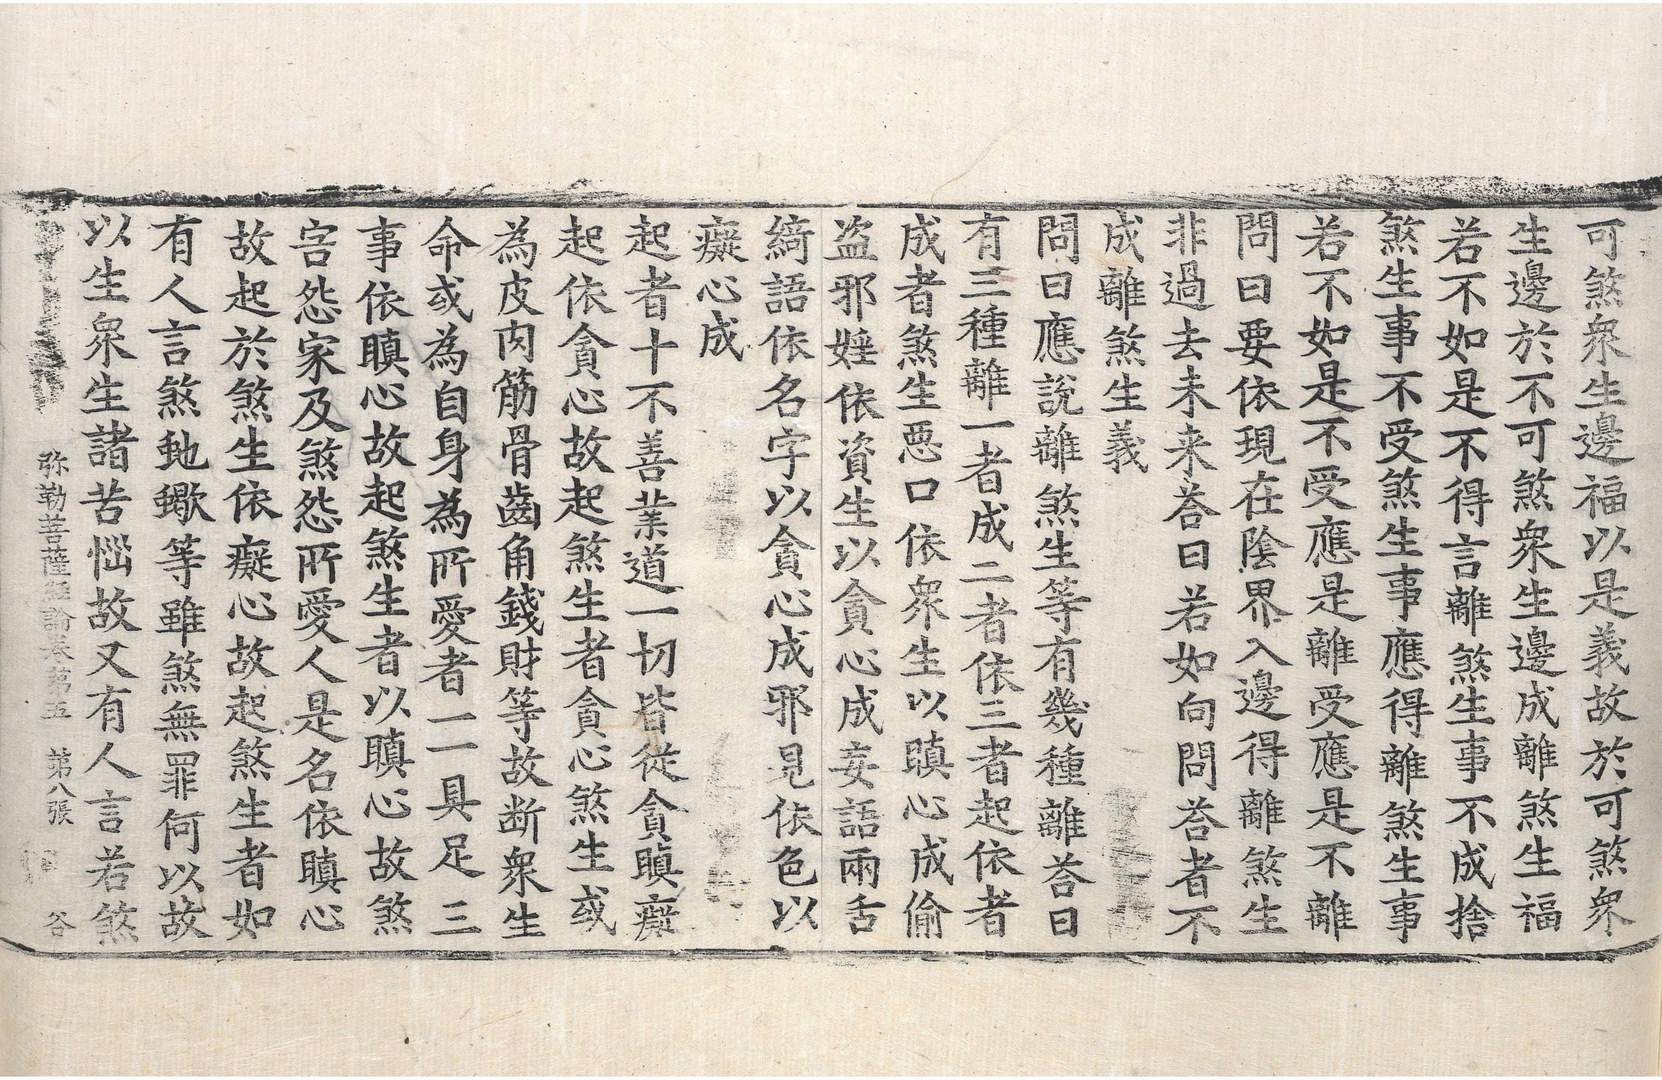 可煞衆生邊福以是義故於可煞衆
生邊於不可煞衆生邊成離煞生福
若不如是不得言離煞生事不成捨
煞生事不受煞生事應得離煞生事
若不如是不受應是離受應是不離
問曰要依現在陰界入邊得離煞生
非過去未来荅曰若如向問荅者不
成離煞生義
問曰應說離煞生等有幾種離荅曰
有三種離一者成二者依三者起依者
成者煞生惡口依衆生以瞋心成偷
盗邪婬依資生以貪心成妄語兩舌
綺語依名字以貪心成邪見依色以
癡心成
起者十不善業道一切皆從貪瞋癡
起依貪心故起煞生者貪心煞生或
為皮肉筋骨齒角錢財等故断衆生
命或為自身為所愛者一一具足三
事依瞋心故起煞生者以瞋心故煞
害怨家及煞怨所愛人是名依瞋心
故起於煞生依癡心故起煞生者如
有人言煞虵蠍等雖煞無罪何以故
以生衆生諸苦惱故又有人言若煞
弥勒菩薩経論卷第五 第八張 谷